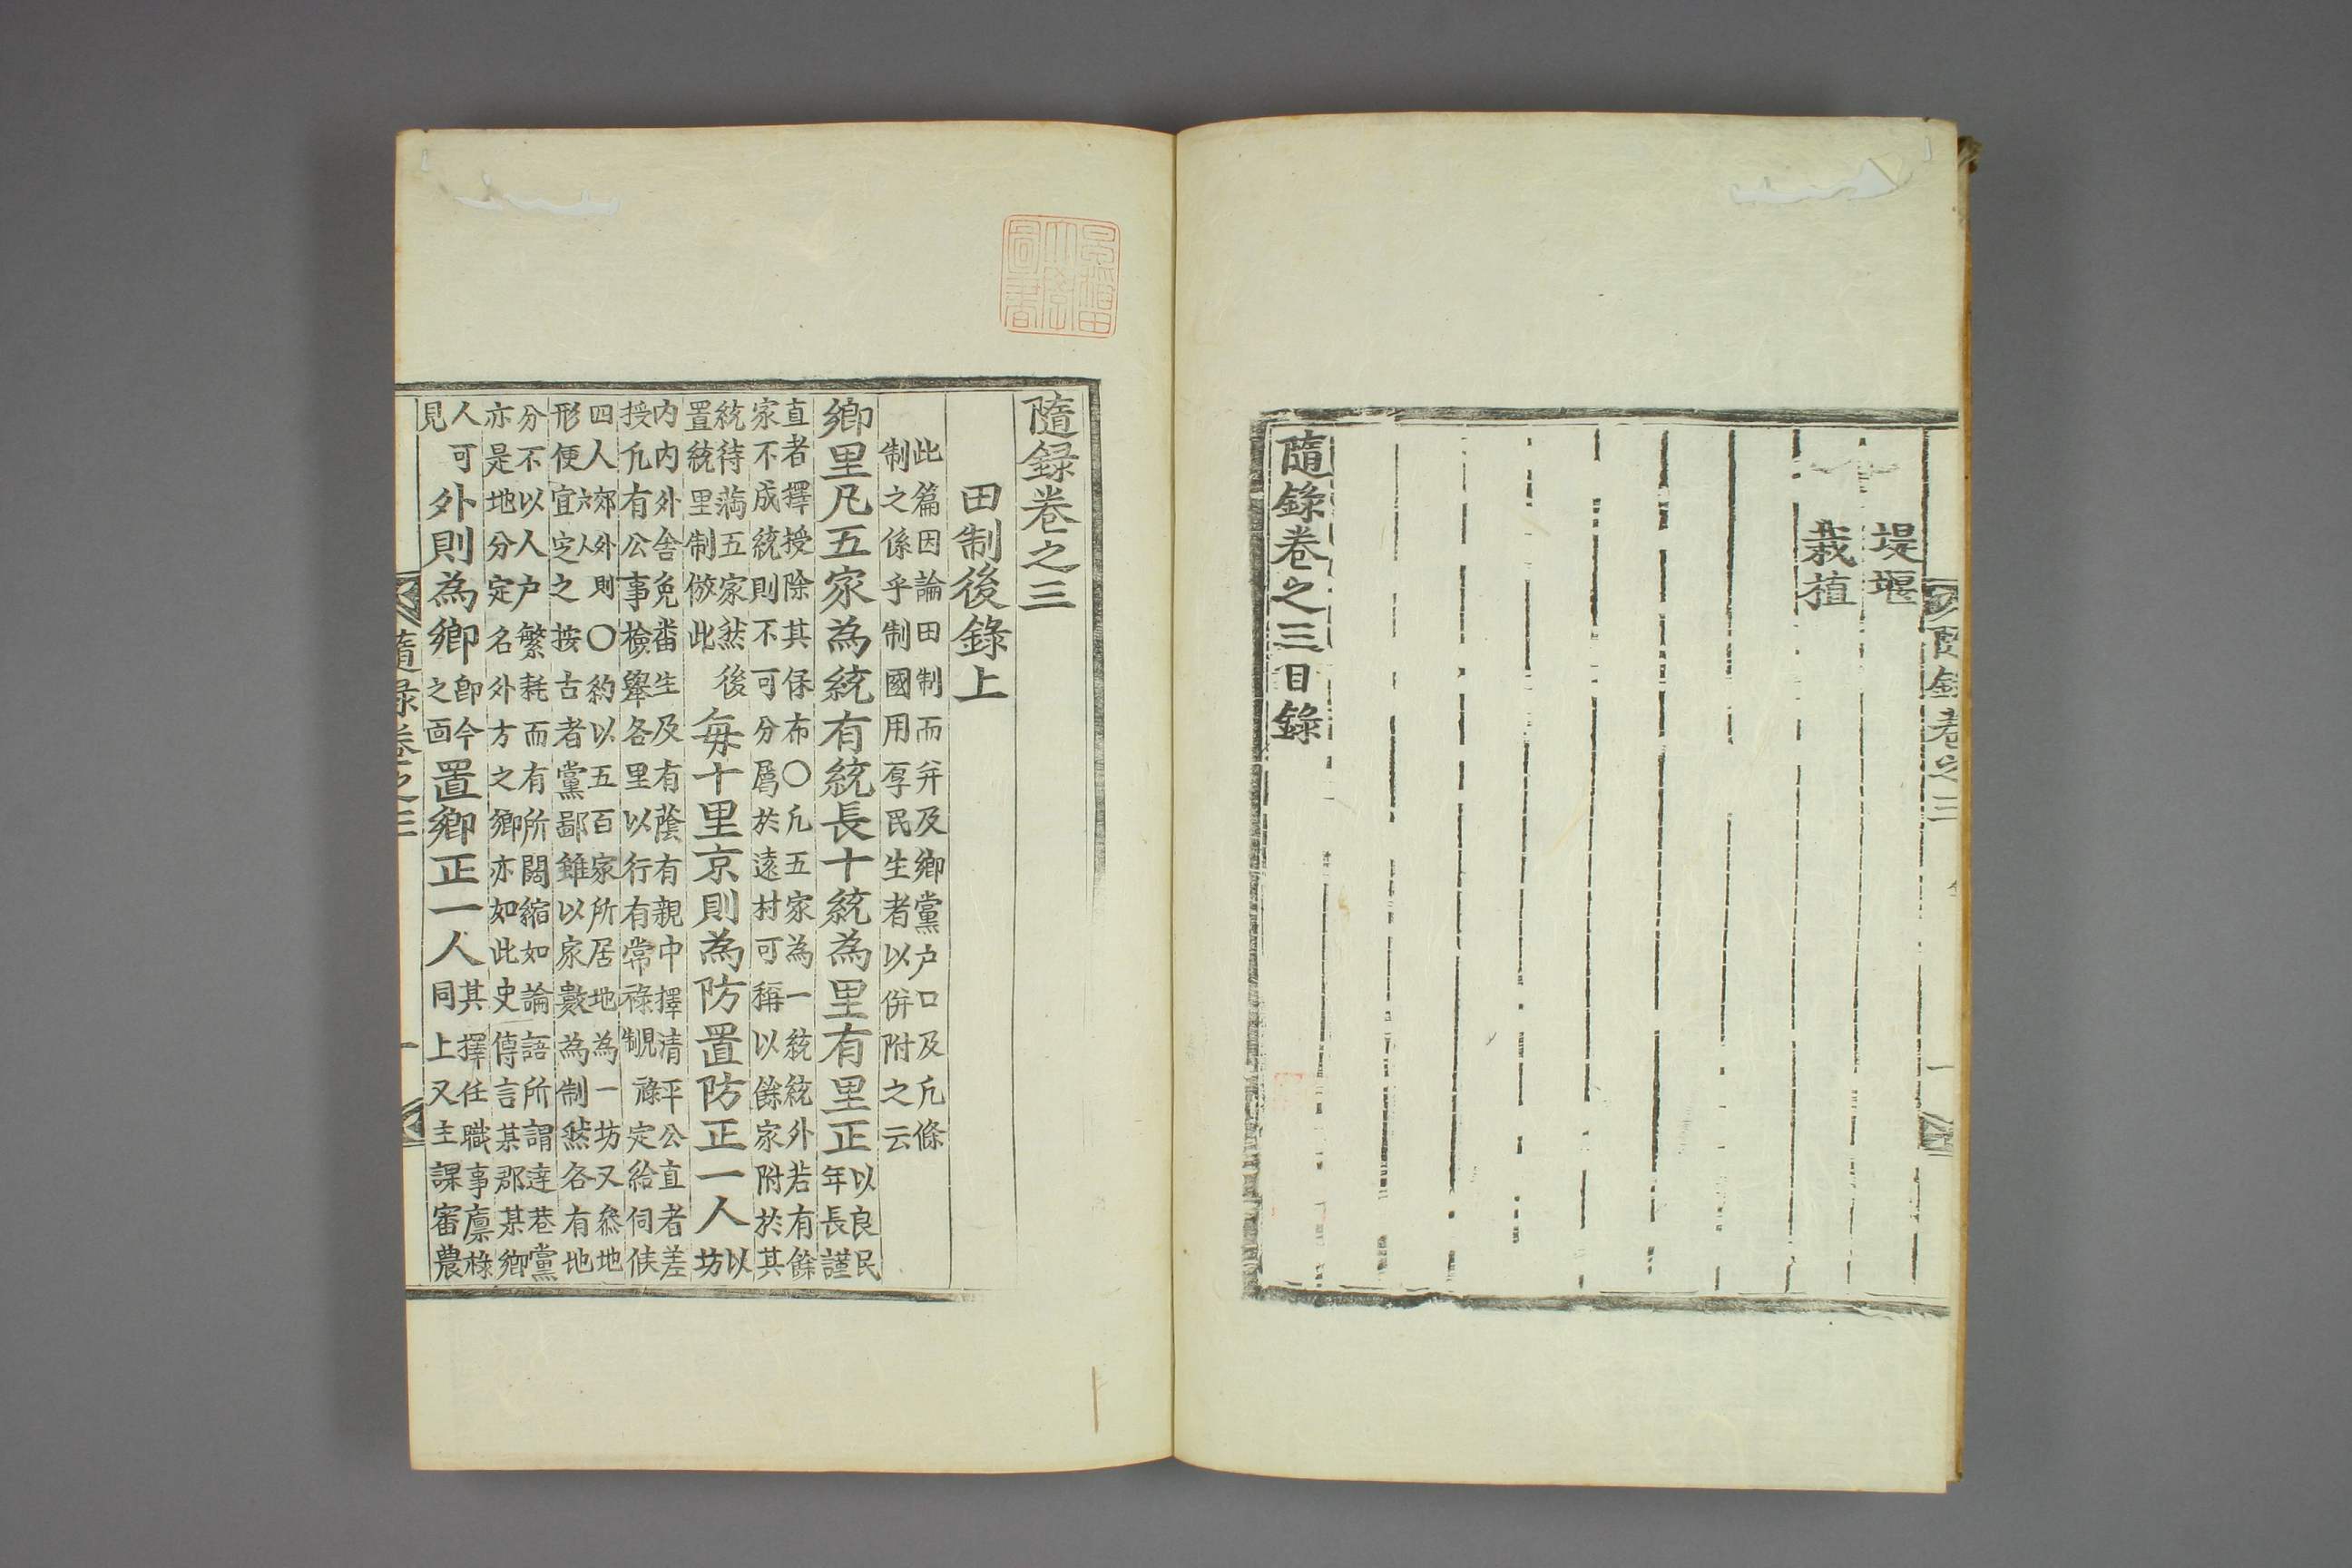 隨錄卷之三
一
堤堰
栽植
隨錄卷之三目錄
隨錄卷之三
田制後錄上
此篇因論田制而并及鄕黨户口及凡條
制之係乎制國用厚民生者以併附之云
鄕里凡五家為統有統長十統為里有里正以良民年長謹
直者擇授除其保布〇凡五家為一統統外若有餘
家不成統則不可分屬於遠村可稱以餘家附於其
統待滿五家然後置統里制倣此每十里京則為防置防正一人以坊
内内外舍免番生及有蔭有親中擇清平公直者差
授凡有公事檢舉各里以行有常祿祿制見定給伺候
四人郊外則六人〇約以五百家所居地為一坊又叅地
形便宜定之按古者黨鄙雖以家數為制然各有地
分不以人户繁耗而有所闊縮如論語所謂達巷黨
亦是地分定名外方之鄕亦如此史傳言某郡某鄕
人可見外則為鄕即今之面置鄕正一人其擇任職事廩祿同上又主課審農
隨錄卷之三
一